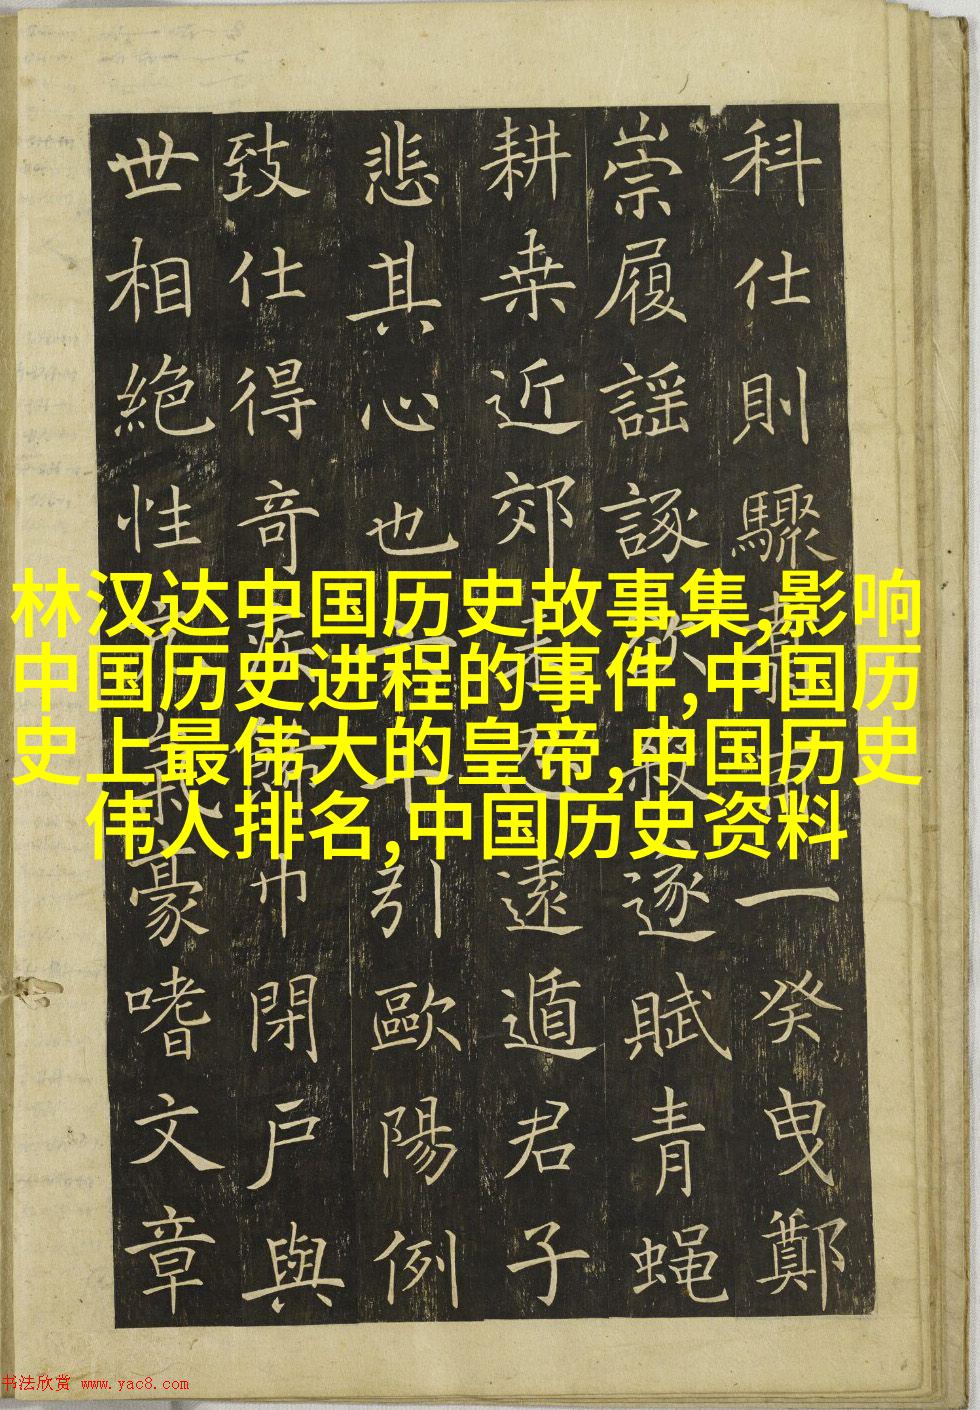 林汉达中国历史故事集,影响
中国历史进程的事件,中国历
史上最伟大的皇帝,中国历史
伟人排名,中国历史资料
科仕則驟一癸曳鄭
崇履謡諑逐賦青蝇
耕桒近郊遠遁君子
悲其心也引歐陽例
致仕得奇巾閉戶與
世相絶性氣豪嗜文章
书法欣赏 www.yac8.com